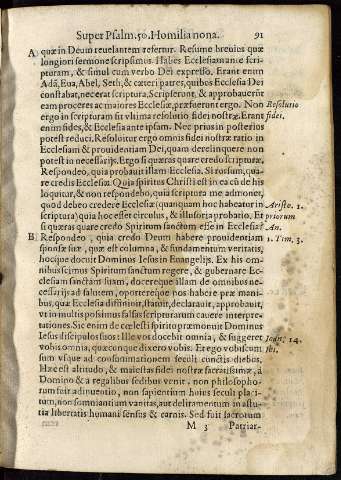 Super Psalm. 50. Homilia nona. 91
A quæ in Deum reuelantem refertur. Resume breuius quæ
longiori sermone scripsimus. Habes Ecclesiam ante scri-
pturam, & simul cum verbo Dei expresso. Erant enim
Adã, Eua, Abel, Seth, & cæteri patres, quibus Ecclesia Dei
constabat, nec erat scriptura. Scripserunt, & approbauerũt
eam proceres ac maiores Ecclesiæ, præfuerunt ergo. Non Resolutio
ergo in scripturam sit vltima resolutio fidei nostræ. Erant fidei.
enim fides, & Ecclesia ante ipsam. Nec prius in posterius
potest reduci. Resoluitur ergo omnis fidei nostræ ratio in
Ecclesiam & prouidentiam Dei, quam derelinquere non
potest in necessarijs. Ergo si quæras quare credo scripturæ.
Respondeo, quia probauit illam Ecclesia. Si rursum, qua-
re credis Ecclesiæ? Quia spiritus Christi est in ea & de his
loquitur, & non respondebo, quia scriptura me admonet,
quod debeo credere Ecclesiæ (quanquam hoc habeatur in Aristo. 1.
scriptura) quia hoc esset circulus, & illusoria probatio. Et priorum
si quæras quare credo Spiritum sanctum esse in Ecclesia? An.
B Respondeo, quia credo Deum habere prouidentiam 1. Tim. 3.
sponsæ suæ, quæ est columna, & fundamentum veritatis,
hocque docuit Dominus Iesus in Euangelijs. Ex his om-
nibus scimus Spiritum sanctum regere, & gubernare Ec-
clesiam sanctam suam, docereque illam de omnibus ne-
cessarijs ad salutem, oportereque nos habere præ mani-
bus, quæ Ecclesia diffiniuit, statuit, declarauit, approbauit,
vt in multis possimus falsas scripturarum cauere interpre-
tationes. Sic enim de cœlesti spiritu præmonuit Dominus
Iesus discipulos suos: Ille vos docebit omnia, & suggeret Joan. 14.
vobis omnia, quæcunque dixero vobis. Et ego vobiscum ibi.
sum vsque ad consummationem seculi cunctis diebus.
Hæc est altitudo, & maiestas fidei nostræ sacratissimæ, à
Domino & a regalibus sedibus venit, non philosopho-
rum fuit adinuentio, non sapientium huius seculi placi-
tum, non somniantium vanitas, aut deliramentum in astu-
tia libertatis humani sensus & carnis. Sed fuit sacrorum
M 3 Patriar-